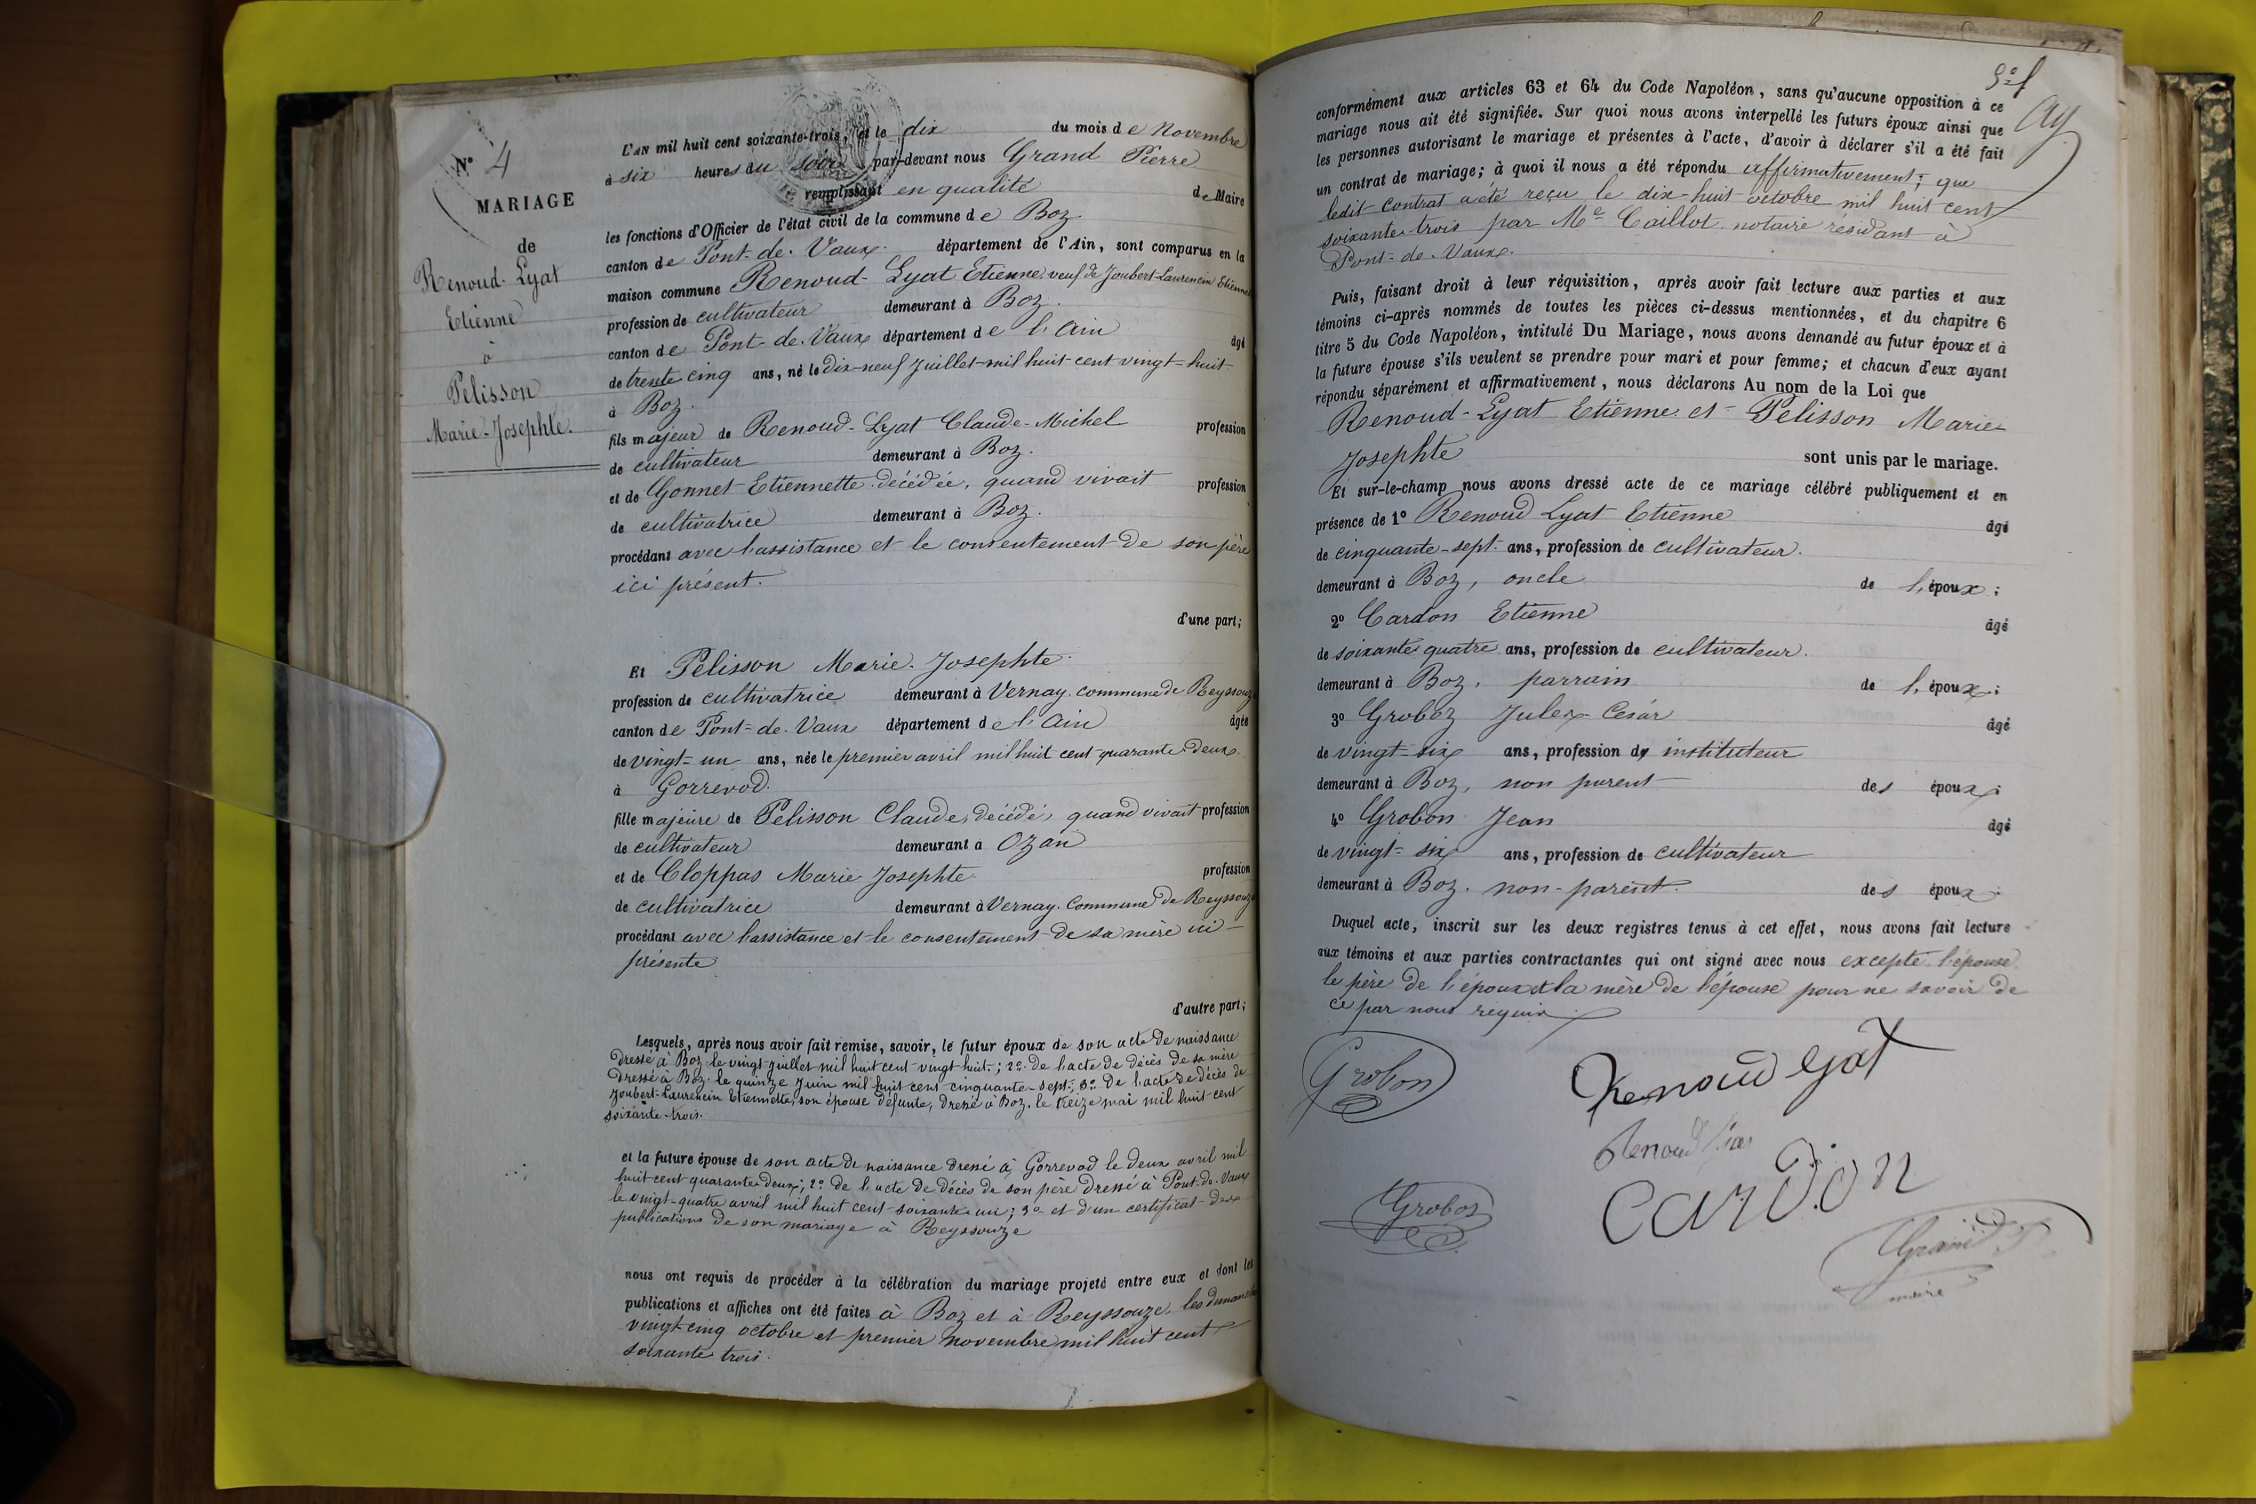 N° 4
MARIAGE
de
Renoud-Lyat
Etienne
à
Pelisson
Marie-Josephte.
L'AN mil huit cent soixante-trois, et le dix du mois de Novembre
à six heures du soir par-devant nous Grand Pierre
remplissant en qualité de Maire
les fonctions d'Officier de l'état civil de la commune de Boz
canton de Pont-de-Vaux. département de l'Ain, sont comparus en la
maison commune Renoud-Lyat Etienne, veuf de Joubert-Laurencin Etienne
profession de cultivateur demeurant à Boz.
canton de Pont-de-Vaux département de l'Ain âgé
de trente cinq ans, né le dix-neuf Juillet mil huit cent vingt-huit
à Boz.
fils majeur de Renoud-Lyat Claude-Michel profession
de cultivateur demeurant à Boz.
et de Gonnet Etiennette décédée, quand vivait profession
de cultivatrice demeurant à Boz.
procédant avec l'assistance et le consentement de son père
ici présent.
d'une part;
Et Pelisson Marie-Josephte.
profession de cultivatrice demeurant à Vernay commune de Reyssouze
canton de Pont-de-Vaux département de l'Ain âgée
de vingt-un ans, née le premier avril mil huit cent quarante deux
à Gorrevod.
fille majeure de Pelisson Claude, décédé, quand vivait profession
de cultivateur demeurant à Ozan
et de Cloppas Marie Josephte profession
de cultivatrice demeurant à Vernay. Commune de Reyssouze
procédant avec l'assistance et le consentement de sa mère ici
présente
d'autre part;
Lesquels, après nous avoir fait remise, savoir, le futur époux de son acte de naissance
dressé à Boz le vingt Juillet mil huit cent vingt-huit; 2° de l'acte de décès de sa mère
dressé à Boz le quinze Juin mil huit cent cinquante-sept; 3° de l'acte de décès de
Joubert-Laurencin Etiennette, son épouse défunte, dressé à Boz, le treize mai mil huit cent
soixante-trois.
et la future épouse de son acte de naissance dressé à Gorrevod le deux avril mil
huit cent quarante deux; 2° de l'acte de décès de son père dressé à Pont-de-Vaux
le vingt-quatre avril mil huit cent soixante un; 3° et d'un certificat des
publications de son mariage à Reyssouze
nous ont requis de procéder à la célébration du mariage projeté entre eux et dont les
publications et affiches ont été faites à Boz et à Reyssouze les dimanches
vingt-cinq octobre et premier Novembre mil huit cent
soixante trois.
conformément aux articles 63 et 64 du Code Napoléon, sans qu'aucune opposition à ce
mariage nous ait été signifiée. Sur quoi nous avons interpellé les futurs époux ainsi que
les personnes autorisant le mariage et présentes à l'acte, d'avoir à déclarer s'il a été fait
un contrat de mariage; à quoi il nous a été répondu affirmativement; que
ledit contrat a été reçu le dix-huit octobre mil huit cent
soixante-trois par Me Caillot notaire résidant à
Pont-de-Vaux.
Puis, faisant droit à leur réquisition, après avoir fait lecture aux parties et aux
témoins ci-après nommés de toutes les pièces ci-dessus mentionnées, et du chapitre 6
titre 5 du Code Napoléon, intitulé Du Mariage, nous avons demandé au futur époux et à
la future épouse s'ils veulent se prendre pour mari et pour femme; et chacun d'eux ayant
répondu séparément et affirmativement, nous déclarons Au nom de la Loi que
Renoud-Lyat Etienne et Pelisson Marie
Josephte sont unis par le mariage.
Et sur-le-champ nous avons dressé acte de ce mariage célébré publiquement et en
présence de 1° Renoud Lyat Etienne âgé
de cinquante-sept ans, profession de cultivateur.
demeurant à Boz, oncle de l'époux;
2° Cardon Etienne âgé
de soixante quatre ans, profession de cultivateur.
demeurant à Boz, parrain de l'époux;
3° Groboz Jules Cesar âgé
de vingt-six ans, profession d' instituteur
demeurant à Boz, non parent des époux;
4° Grobon Jean âgé
de vingt-six ans, profession de cultivateur
demeurant à Boz. non-parent. des époux.
Duquel acte, inscrit sur les deux registres tenus à cet effet, nous avons fait lecture
aux témoins et aux parties contractantes qui ont signé avec nous excepté l'épouse
le père de l'époux et la mère de l'épouse pour ne savoir de
ce par nous requis.
Grobon
Renoud Lyat
Renoud
Cardon
Groboz
Grand P.
maire